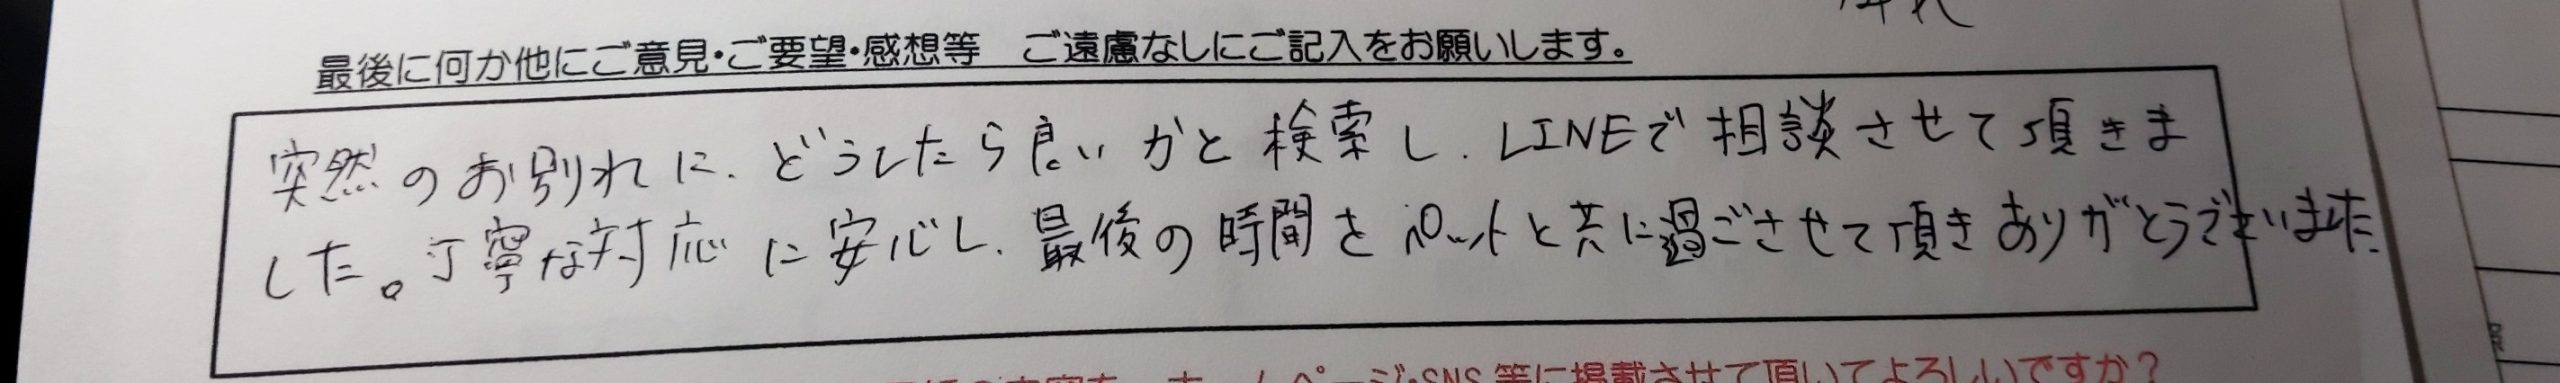 最後に何か他にご意見・ご要望・感想等　ご遠慮なしにご記入をお願いします。
突然のお別れに、どうしたら良いかと検索し、LINEで相談させて頂きま
した。丁寧な対応に安心し、最後の時間をペットと共に過ごさせて頂きありがとうございました
ホームページ・SNS等に掲載させて頂いてよろしいですか？